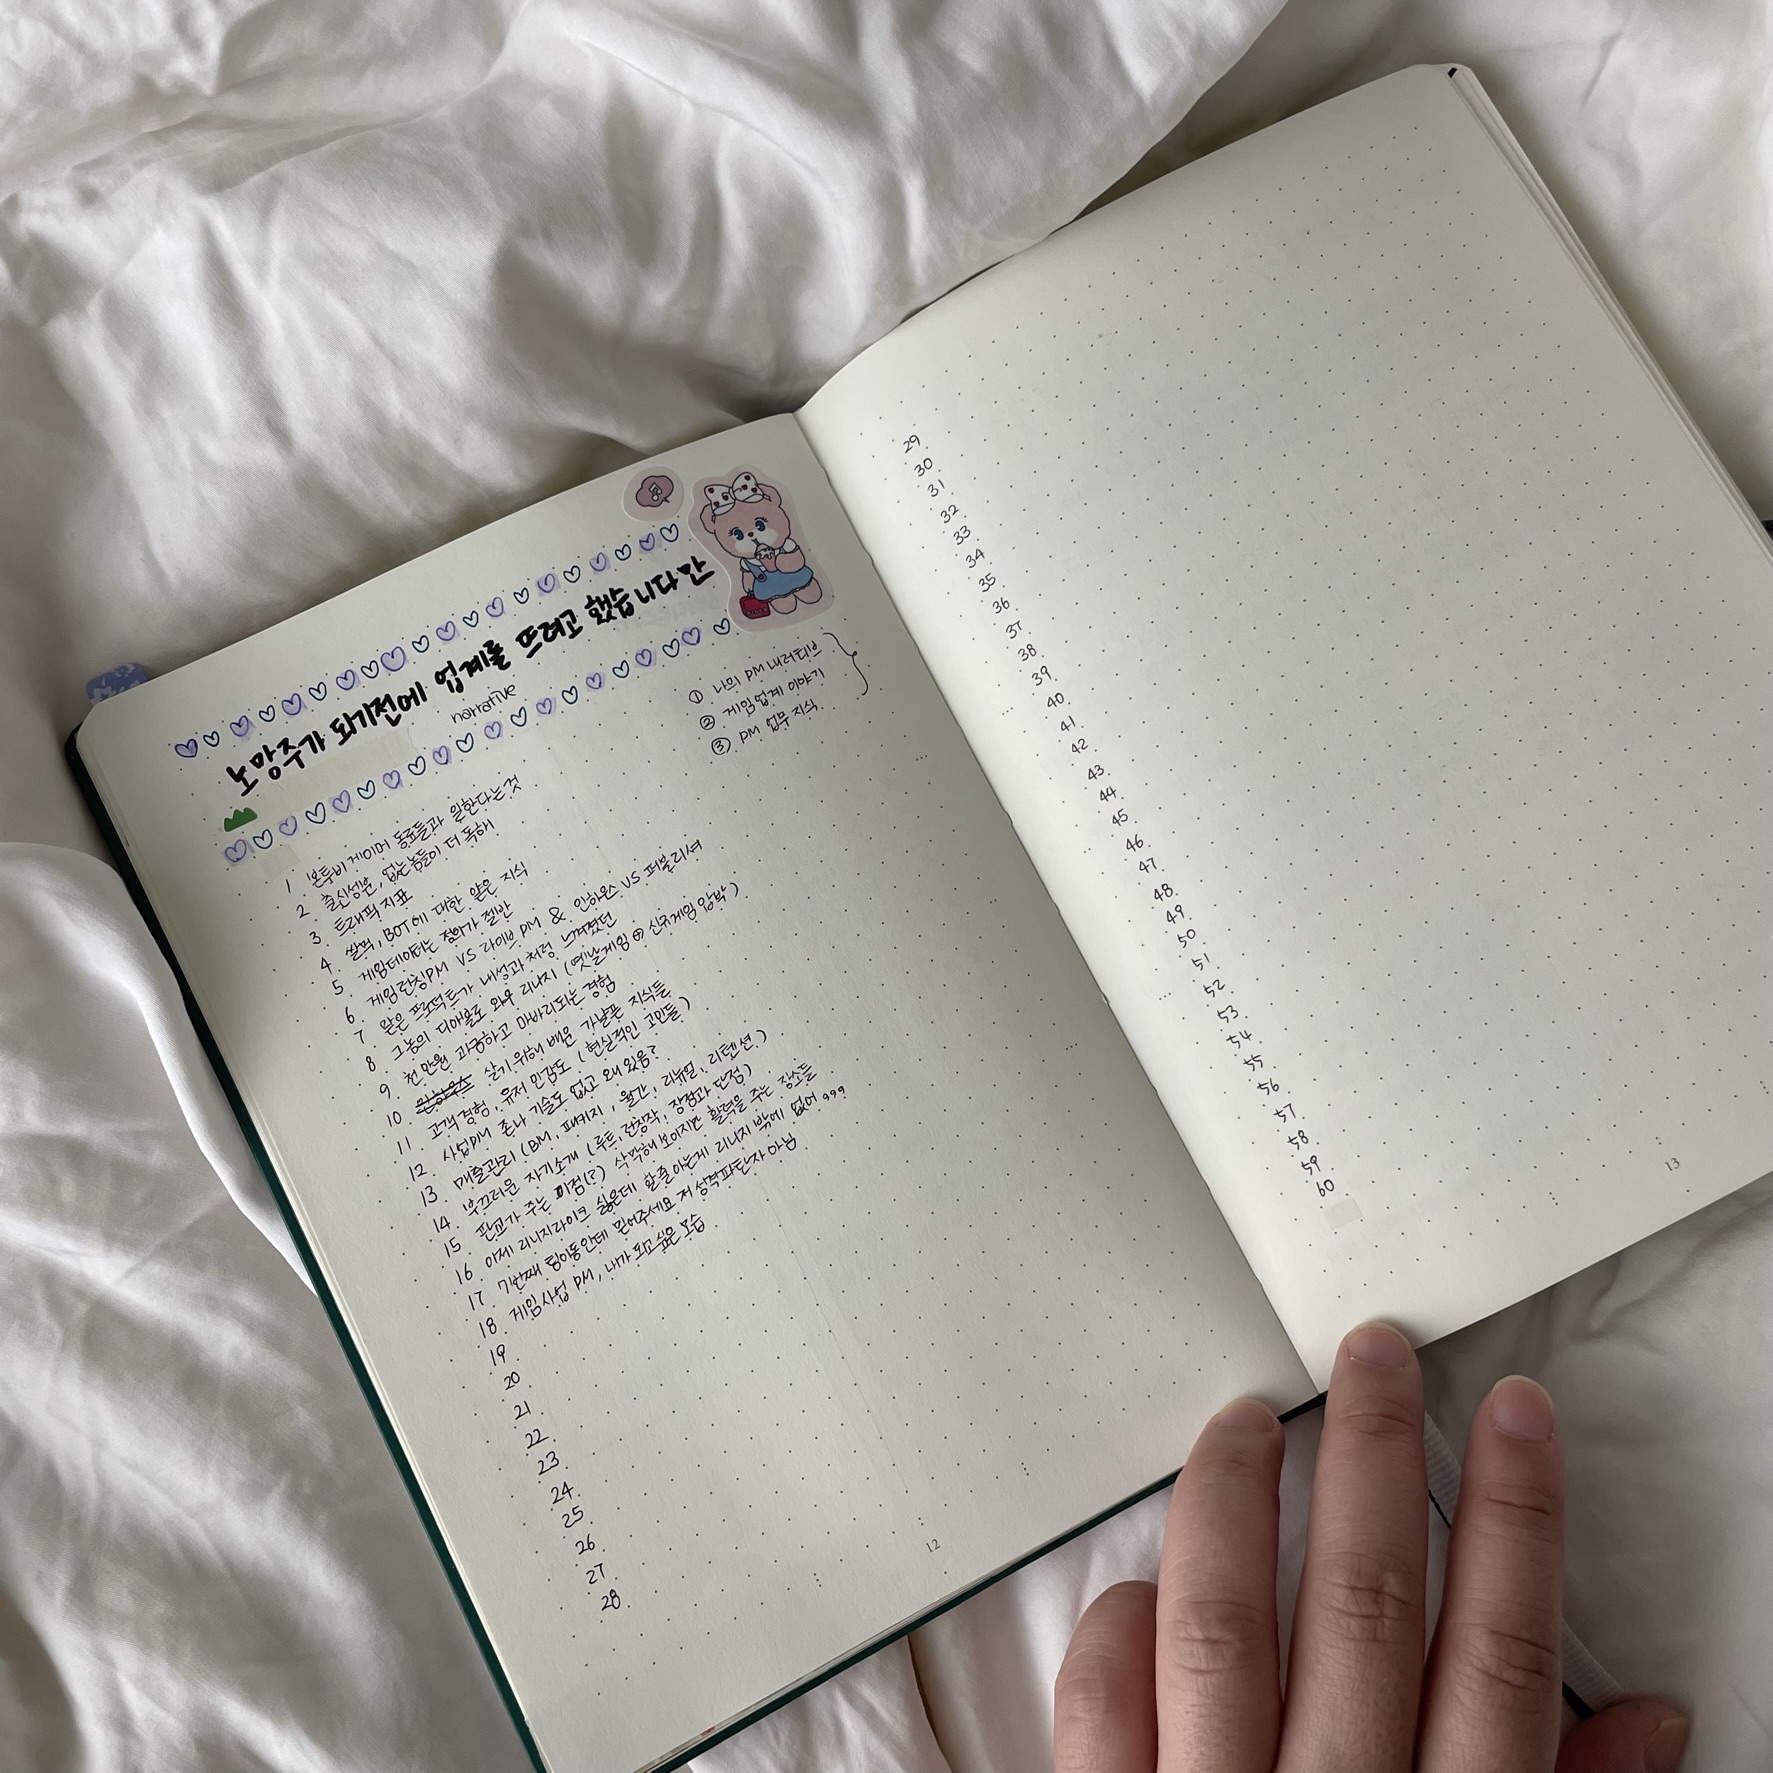 노망주가 되기전에 업계를 뜨려고 했습니다만
narrative
① 나의 PM 내러티브
② 게임업계 이야기
③ PM 업무 지식
1 본투비 게이머 동료들과 일한다는 것
2. 출신성분, 없는놈들이 더 독해
3. 트래픽 지표
4. 쌀먹, BOT에 대한 얕은 지식
5. 게임데이터는 정하가 절반
6. 게임런칭PM VS 라이브PM & 인하우스 VS 퍼블리셔
7. 맡은 프로덕트가 내성과처럼 느껴졌던
8. 그놈의 디아블로 와우 리니지 (옛날게임 ⊕ 신규게임 압박)
9. 천만원 과금하고 마바리되는 경험
10. 살기위해 배운 가냘픈 지식들
11. 고객경험, 유저 민감도 (현실적인 고민들)
12. 사업PM 존나 기술도 없고 왜 있음?
13. 매출관리 (BM, 패키지, 월간, 리뉴얼, 리텐션)
14. 부끄러운 자기소개 (루트, 런칭작, 장점과 단점)
15. 판교가 주는 이점(?) 삭막해보이지만 활력을 주는 장소들
16. 아제 리니지라이크 싫은데 할줄아는게 리니지밖에 없어 ,,,
17. 7번째 팀이동인데 믿어주세요 저 성격파탄자아님
18. 게임사업 PM, 내가 되고싶은 모습
19.
20.
21.
22.
23.
24.
25.
26.
27.
28.
12
29.
30.
31.
32.
33.
34
35.
36.
37
38
39.
40.
41.
42.
43.
44.
45.
46.
47.
48.
49.
50
51.
52.
53.
54.
55.
56
57.
58.
59.
60
13